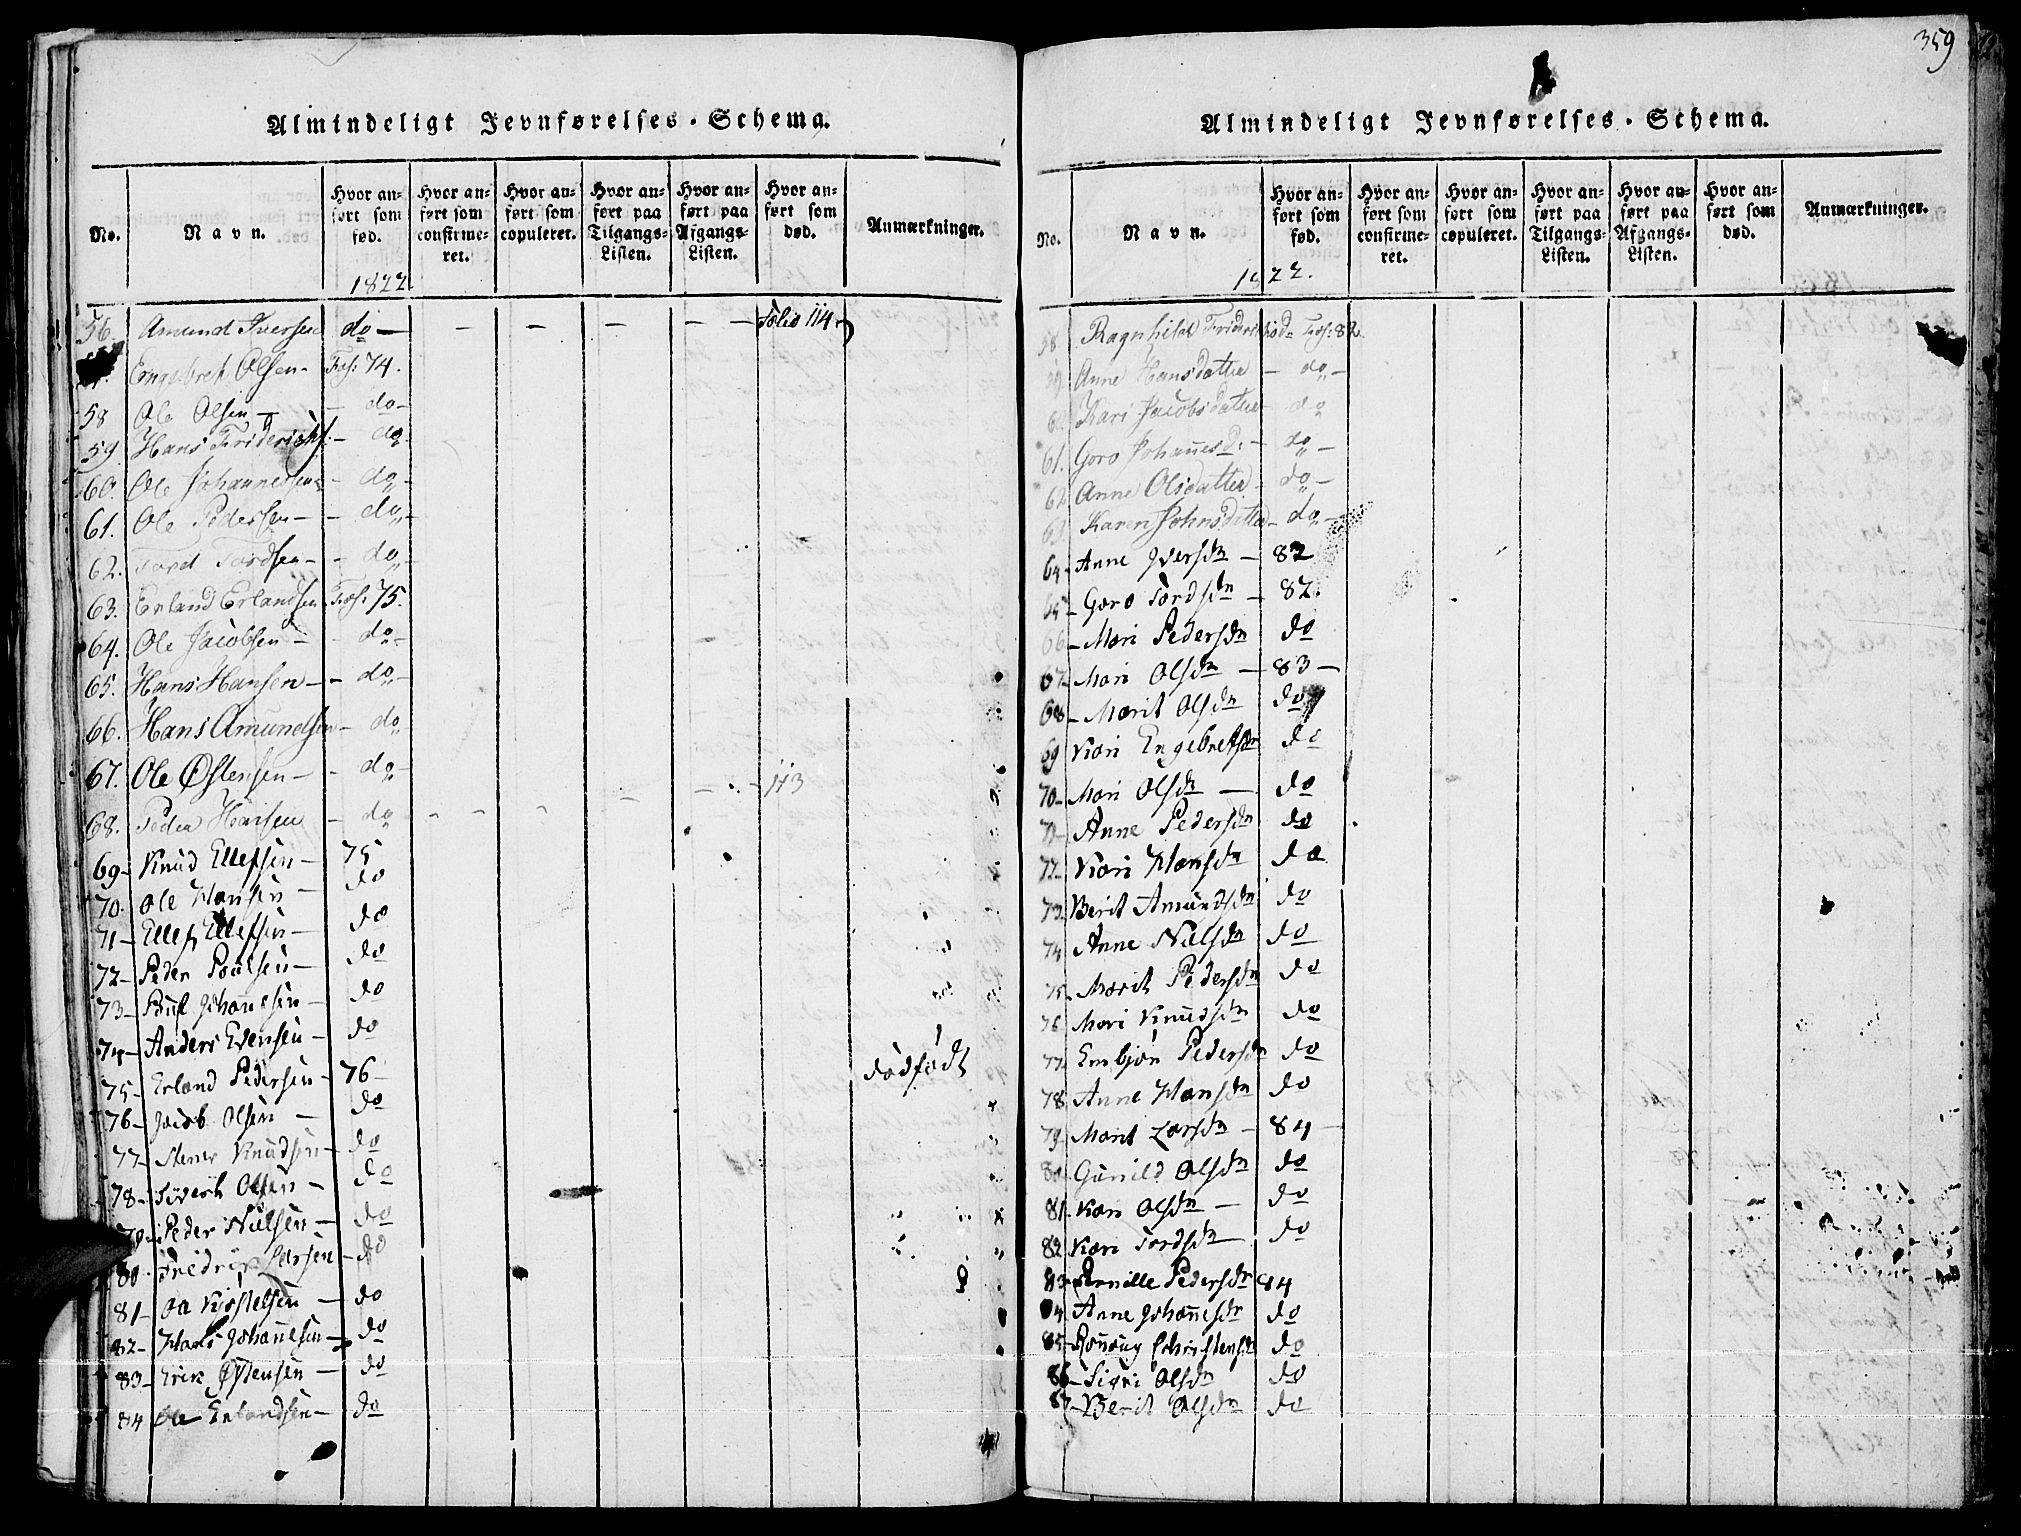 359
Almindeligt Jevnførelses-Schema.
No.
Navn.
Hvor anført som fød.
Hvor anført som confirmeret.
Hvor anført som copuleret.
Hvor anført paa Tilgangs-Listen.
Hvor anført paa Afgangs-Listen.
Hvor anført som død.
Anmærkninger.
1822
56. Amund Iversen do — — — — — — Folio 114
Engebret Olsen - Fol: 74.
58 Ole Olsen — - do -
59. Hans Friderichs: - do
60. Ole Johannesen - do -
61. Ole Pedersen - - do -
62. Tord Tordsen - - do -
63. Erland Erlandsen Fol: 75.
64. Ole Jacobsen - - do -
65. Hans Hansen - - do -
66. Hans Amundsen - do
67. Ole Østensen - - do - 113
68. Peder Hansen - do
69 - Knud Ellefsen - 75
70. Ole Hansen - do
71 - Ellef Ellefsen - do
72 - Peder Poulsen - do
73 - Poul Johanesen - do
74 - Anders Evensen - do
75 - Erland Pedersen - 76 - dødfødt
76 - Jacob Olsen - do
77 - Stener Knudsen - do
78 - Sivert Olsen - do
79. Peder Nielsen - do
80 Fredrik Larsen - do
81 - Ole Kjøstelsen - do
82 - Hans Johanesen - do
83 - Erik Østensen - do
84 Ole Erlandsen - do
Almindeligt Jevnførelses-Schema.
No.
Navn.
Hvor anført som fød.
Hvor anført som confirmeret.
Hvor anført som copuleret.
Hvor anført paa Tilgangs-Listen.
Hvor anført paa Afgangs-Listen.
Hvor anført som død.
Anmærkninger.
1822.
58. Ragnhild Friderichsd- Fol: 82
Anne Hansdatter - do -
Kari Jacobsdatter - do
61. Goro Johannesd: - do -
62 Anne Olsdatter - do -
63. Karen Johnsdatter - do -
64 - Anne Iversdn - 82
65 - Goro Tordsdn - 82.
66 - Mari Pedersdn do
67 - Mari Olsdn - 83 -
68 - Marit Olsdn do
69 Kari Engebretsdn do
70 - Mari Olsdn - do
71 - Anne Pedersdn do
72 - Kari Hansdn do
73. Berit Amundsdn do
74 Anne Nielsdn do
75. Marit Pedersdn do
76 Mari Knudsdn do
77. Embjør Pedersdn do
78 Anne Hansdn do
79. Marit Larsdn - 84 -
80 Gunild Olsdn do
81. Kari Olsdn - do
82. Kari Tordsdn do
83 Pernille Pedersdr 84
84 Anne Johanesdr do
85 - Rønnaug Christensdr do
86 - Sigri Olsdn do
87 - Berit Olsdn do